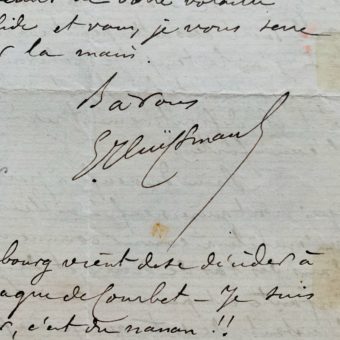 votre volaille
et vous, je vous serre
la main.
Bà vous
G. Huÿsmans
bourg vient de se décider à
aque de Courbet – Je suis
, c'est du nanan !!